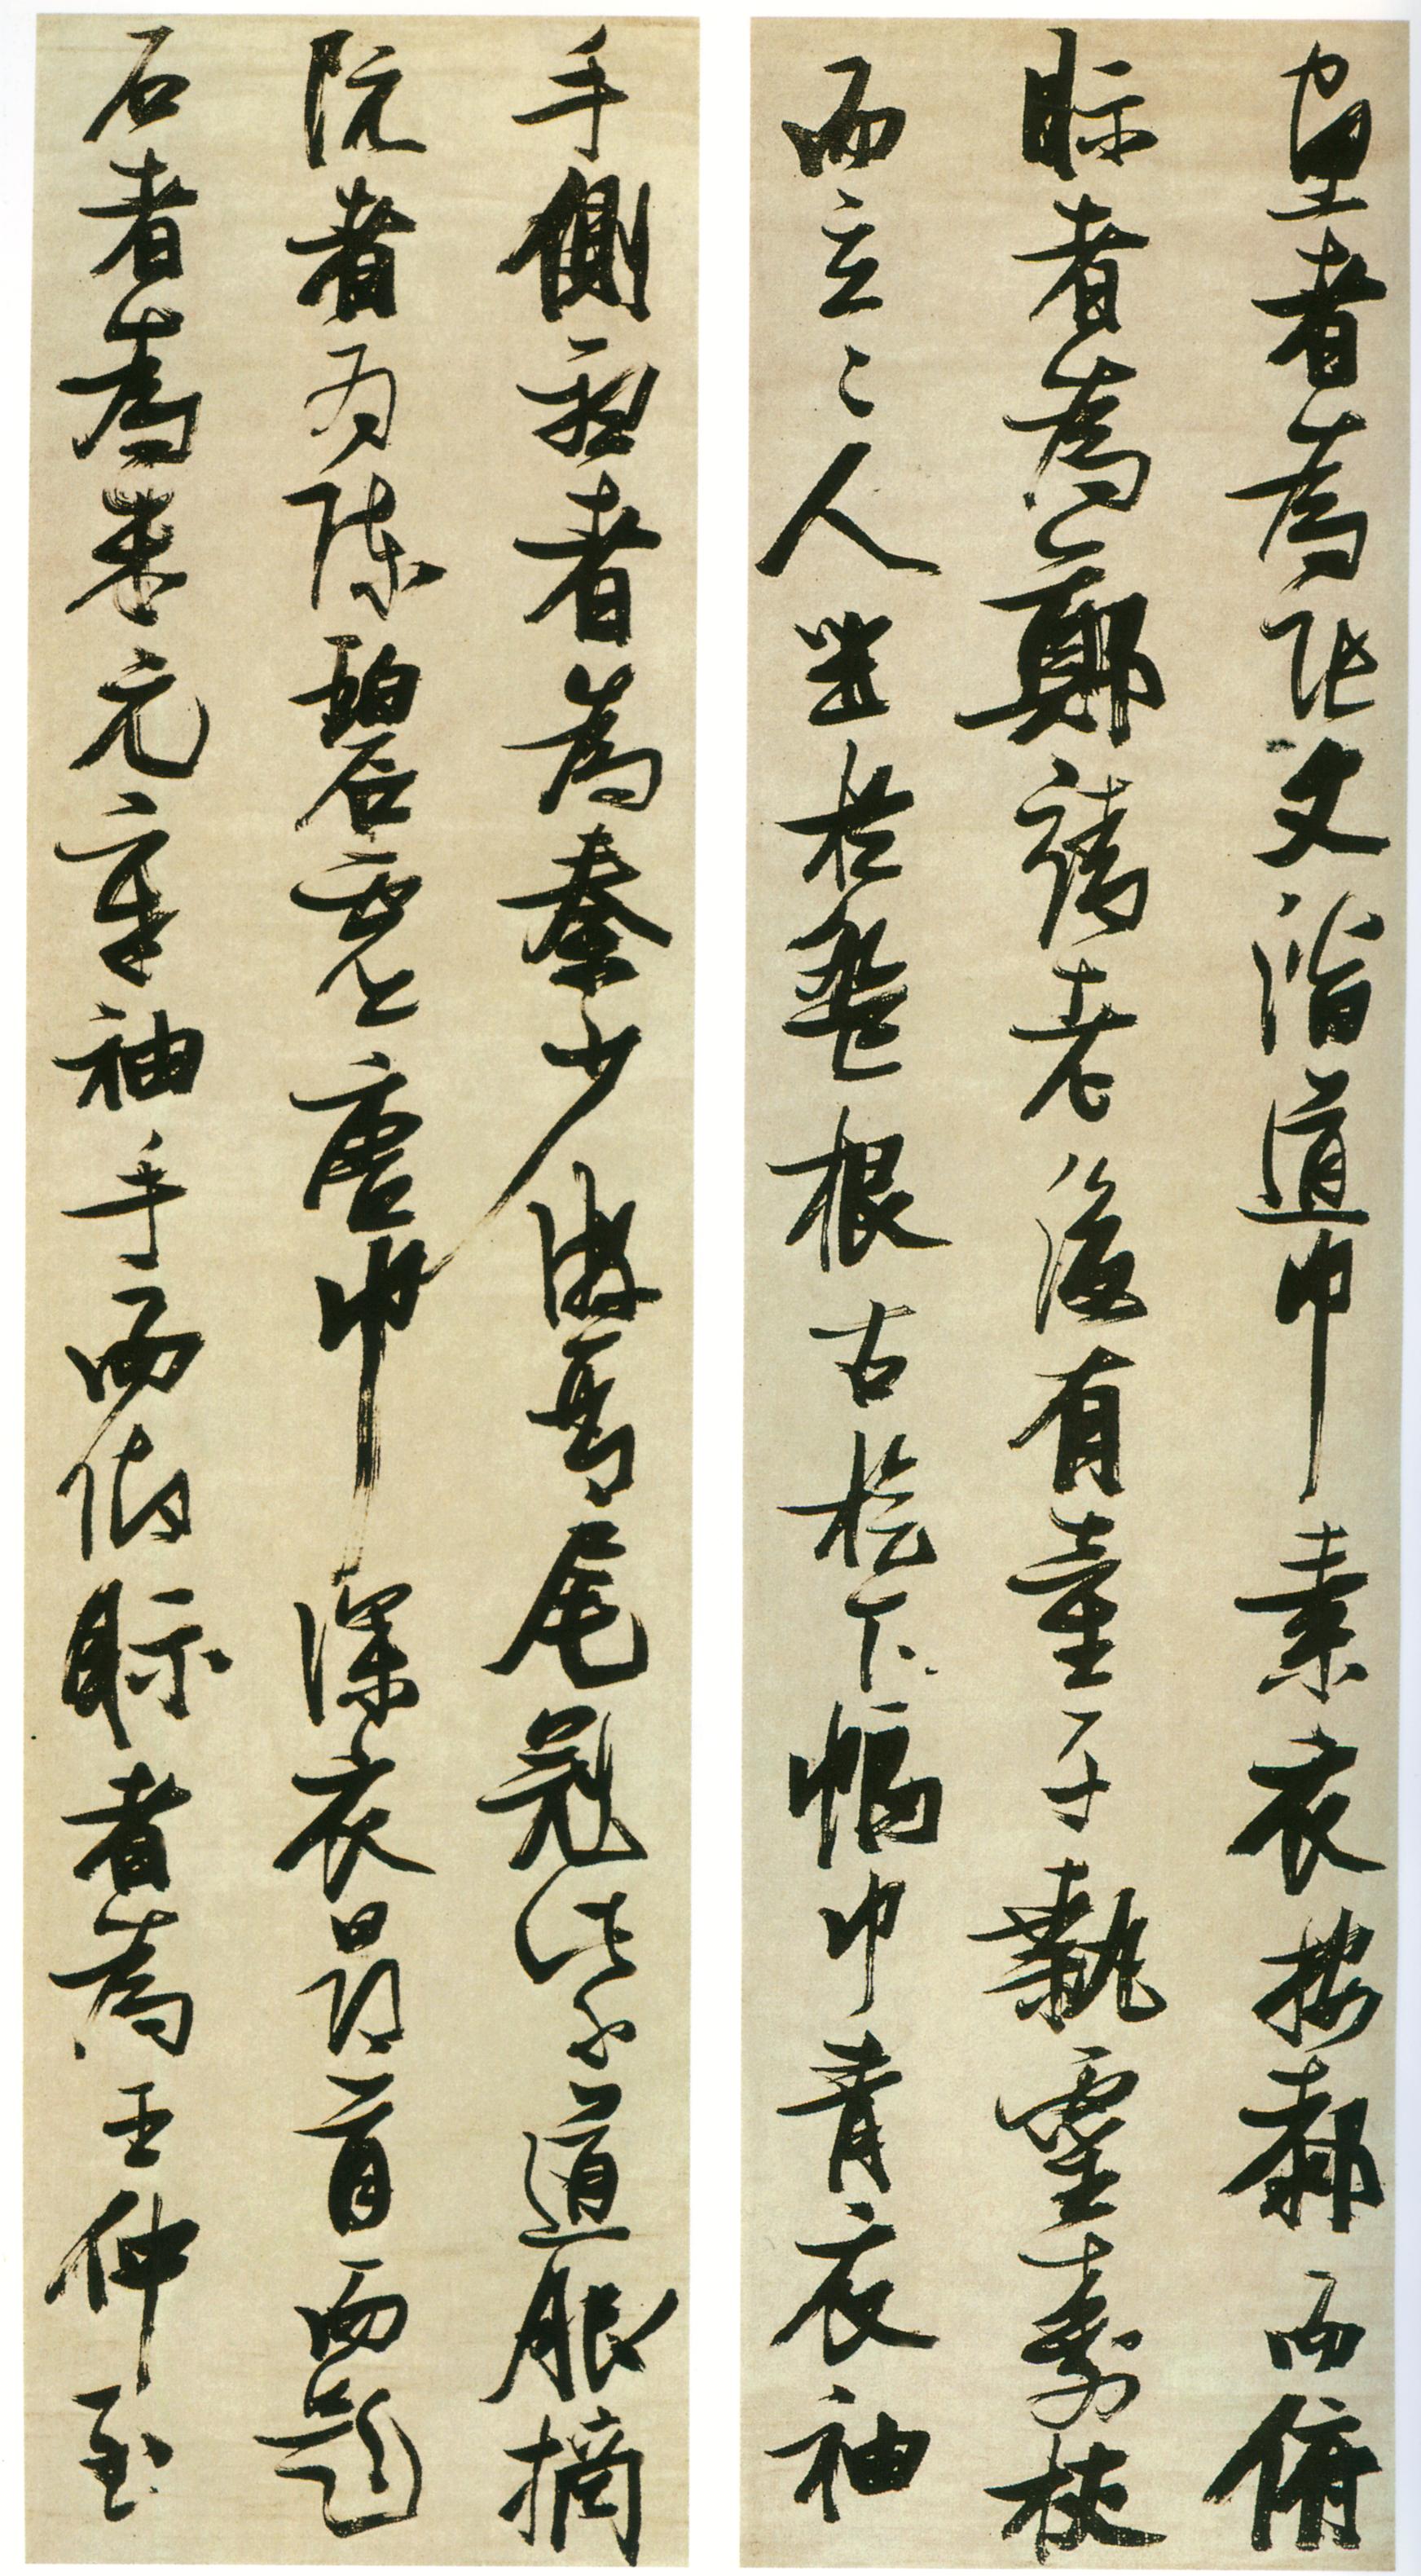 望者為張文潛道巾素衣按膝而俯
眎者為鄭靖老後有童子執靈壽杖
而立二人坐於盤根古檜下幅巾青衣袖
手側聽者為秦少游琴尾冠紫道服摘
阮者為陳碧虛唐巾深衣昂首而題
石者為米元章袖手而仰眎者為王仲至